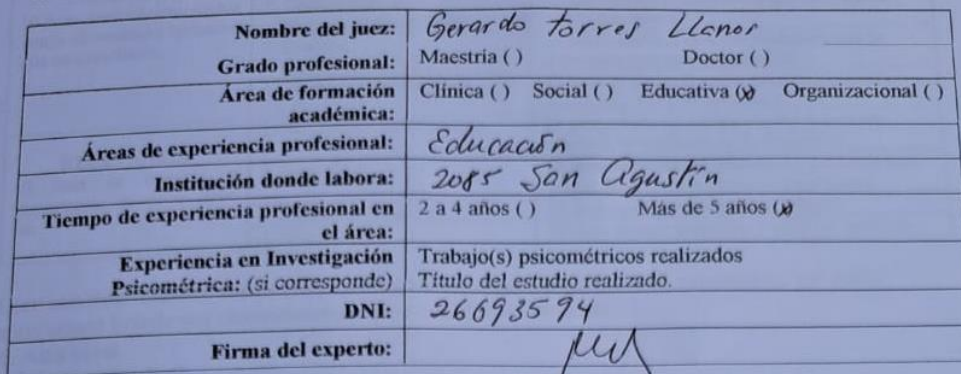 Nombre del juez: Gerardo Torres Llanos
Grado profesional: Maestria ( ) Doctor ( )
Área de formación académica: Clínica ( ) Social ( ) Educativa (x) Organizacional ( )
Áreas de experiencia profesional: Educación
Institución donde labora: 2085 San Agustín
Tiempo de experiencia profesional en el área: 2 a 4 años ( ) Más de 5 años (x)
Experiencia en Investigación Psicométrica: (si corresponde) Trabajo(s) psicométricos realizados
Título del estudio realizado.
DNI: 26693594
Firma del experto: